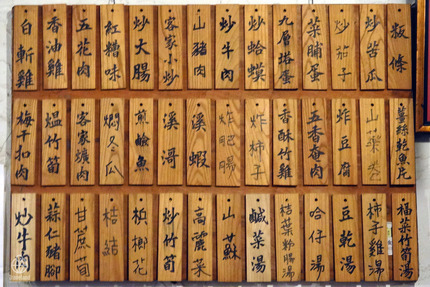 白斬雞
香油雞
五花肉
紅糟味
炒大腸
客家小炒
山豬肉
炒牛肉
炒蛤蟆
九層塔蛋
菜脯蛋
炒茄子
炒苦瓜
粄條
梅干扣肉
熅竹筍
客家爌肉
燜冬瓜
煎鹼魚
溪哥
溪蝦
炸肥腸
炸柿子
香酥竹雞
五香香肉
炸豆腐
薑絲鮑魚片
炒牛肉
蒜仁豬腳
甘蔗筍
桔結
梹榔花
炒竹筍
高麗菜
山蘇
鹹菜湯
桔菜粉腸湯
哈仔湯
豆乾湯
柿子雞湯
福菜竹筍湯